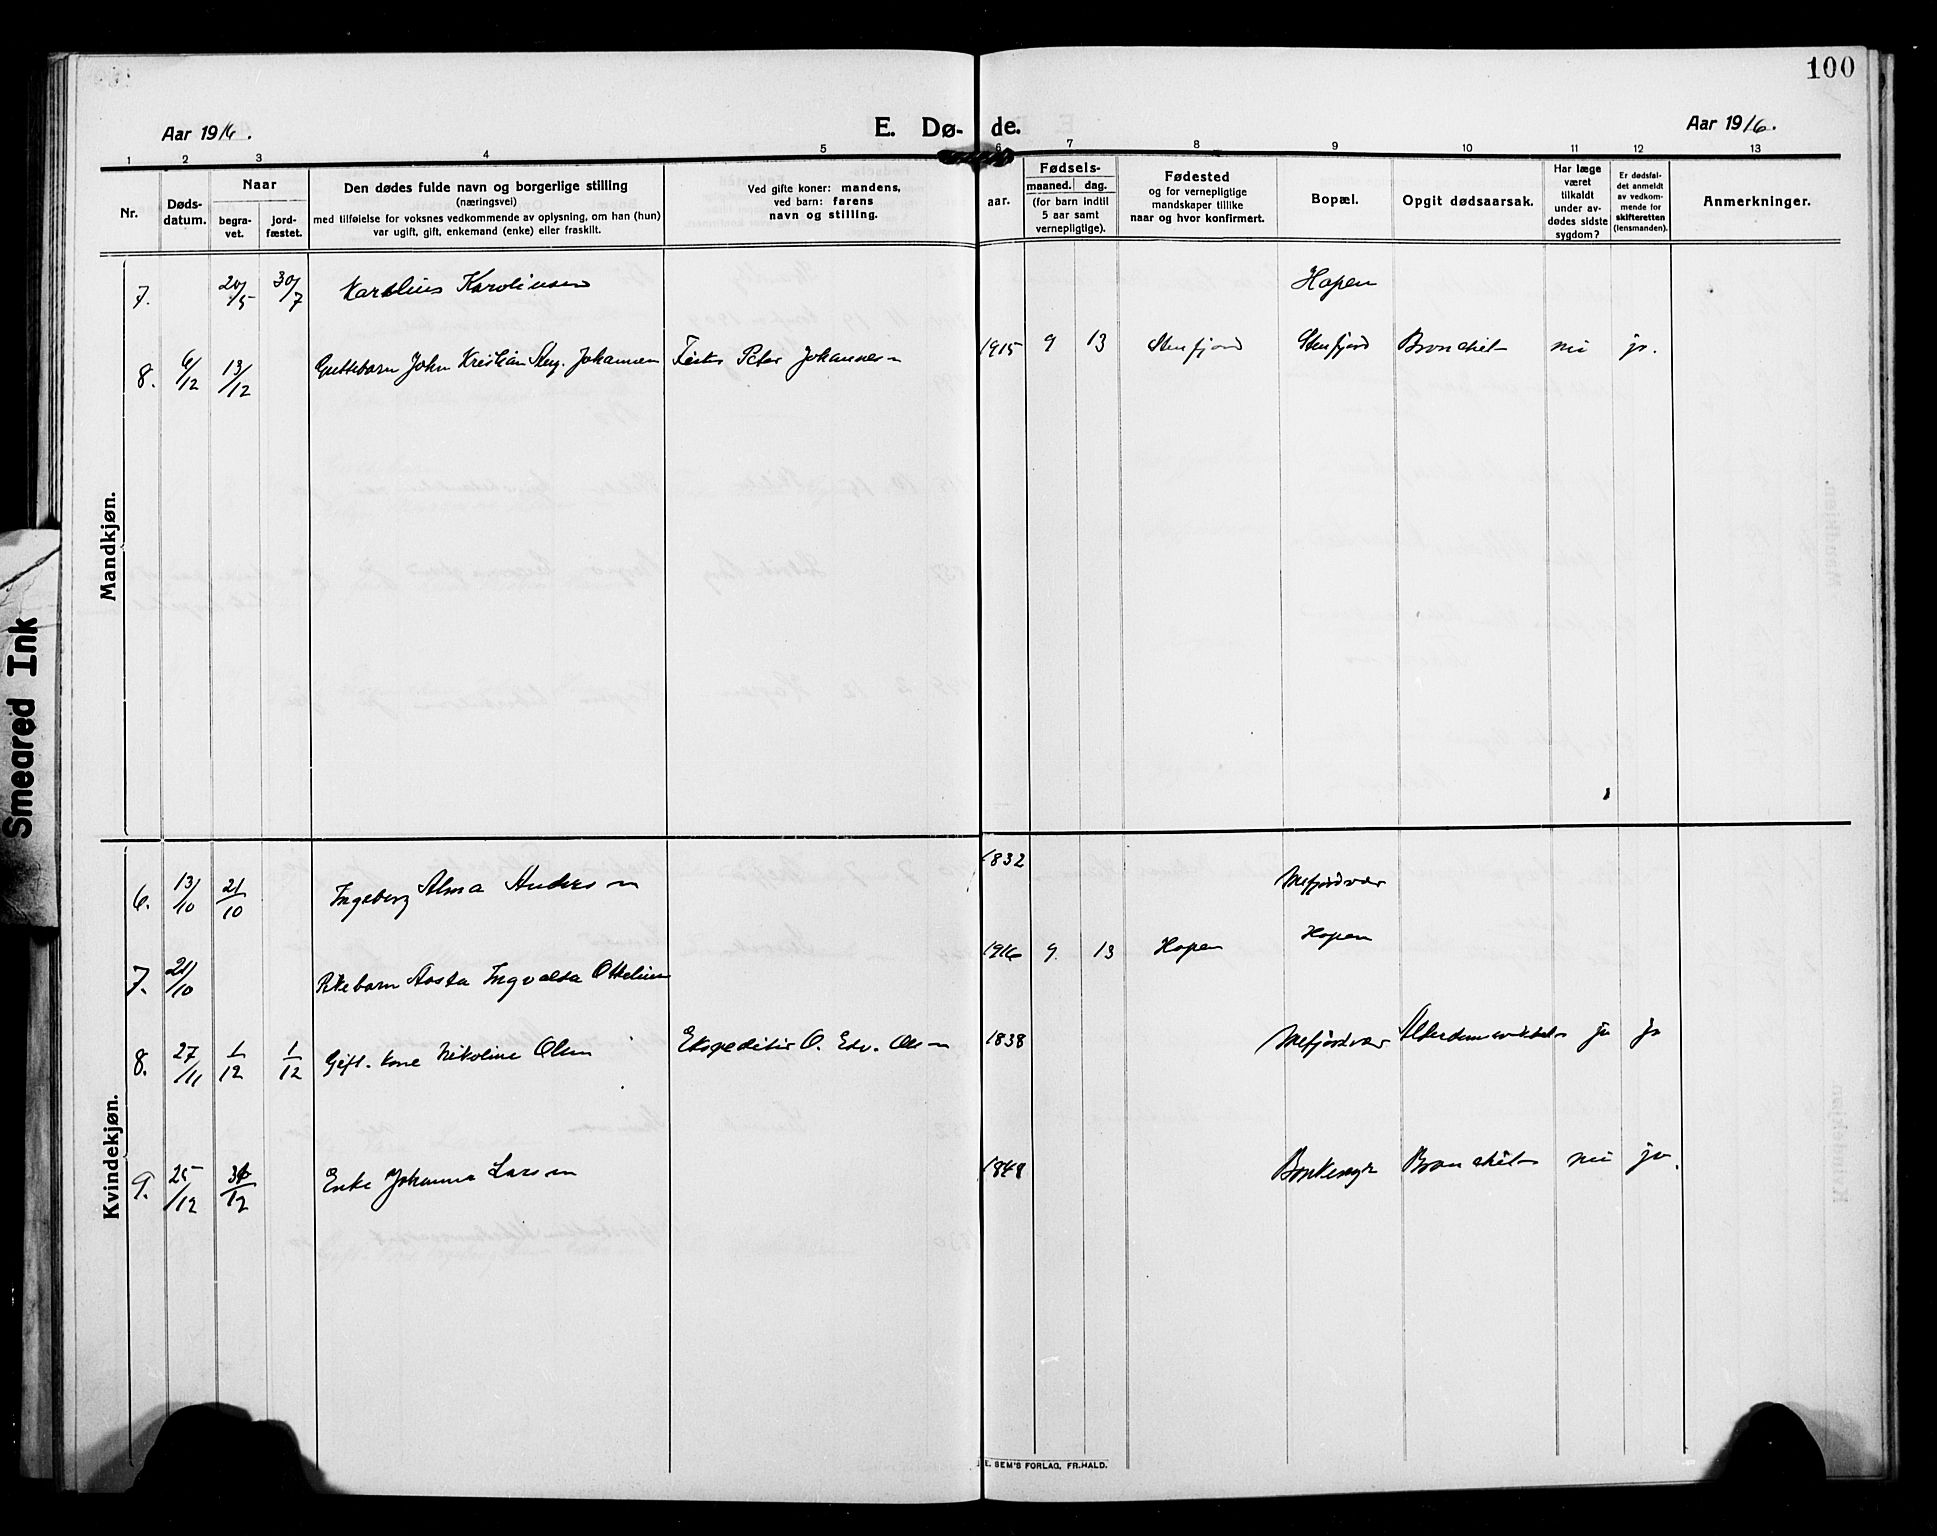 100
Aar 1916.
E. Dø- de.
Aar 1916.
1 2 3 4 5 6 7 8 9 10 11 12 13
Nr.
Døds-
datum.
Naar
begra-
vet.
jord-
fæstet.
Den dødes fulde navn og borgerlige stilling
(næringsvei)
med tilføielse for voksnes vedkommende av oplysning, om han (hun)
var ugift, gift, enkemand (enke) eller fraskilt.
Ved gifte koner: mandens,
ved barn: farens
navn og stilling.
aar.
Fødsels-
maaned. dag.
(for barn indtil
5 aar samt
vernepligtige).
Fødested
og for vernepligtige
mandskaper tillike
naar og hvor konfirmert.
Bopæl.
Opgit dødsaarsak.
Har læge
været
tilkaldt
under av-
dødes sidste
sygdom?
Er dødsfal-
det anmeldt
av vedkom-
mende for
skifteretten
(lensmanden).
Anmerkninger.
Mandkjøn.
7. 20/5 30/7 Karolius Karoliusen Hopen
8. 6/12 13/12 Guttebarn John Kristian Johansen Fisker Peter Johannesen 1915 9 13 Stenfjord Stenfjord Bronchit nei ja.
Kvindekjøn.
6. 13/10 21/10 Ingeborg Alma Andersen 1832 Mefjordvær
7. 21/10 Pikebarn Aasta Ingvalda 1916 9. 13 Hopen Hopen
8. 27/11 1/12 1/12 Gift. kone Nikoline Olsen Ekspeditør O. Edv. Olsen 1838 Mefjordvær ja ja
9. 25/12 /12 Enke Johanna Larsen 1848 Bronchit nei ja.
E. SEM'S FORLAG, FR.HALD.
Smeared Ink